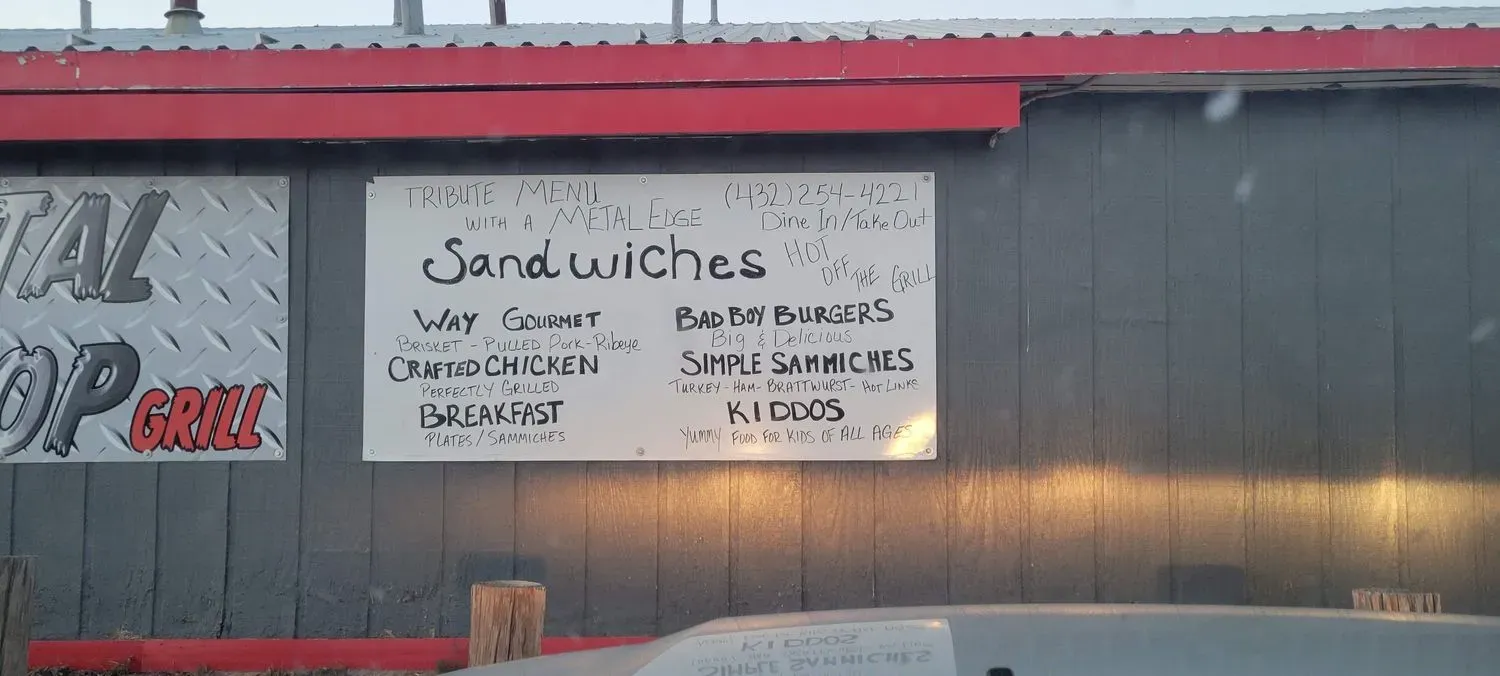 TAL
OP GRILL
TRIBUTE MENU
WITH A METAL EDGE
(432) 254-4221
Dine In/Take Out
Sandwiches
HOT
OFF
THE GRILL
WAY GOURMET
BRISKET - PULLED PORK-Ribeye
CRAFTED CHICKEN
PERFECTLY GRILLED
BREAKFAST
PLATES/SAMMICHES
BAD BOY BURGERS
Big & Delicious
SIMPLE SAMMICHES
TURKEY-HAM-BRATTWURST-HOT LINKS
KIDDOS
YUMMY FOOD FOR KIDS OF ALL AGES
KIDDOS
SIMPLE SAMMICHES